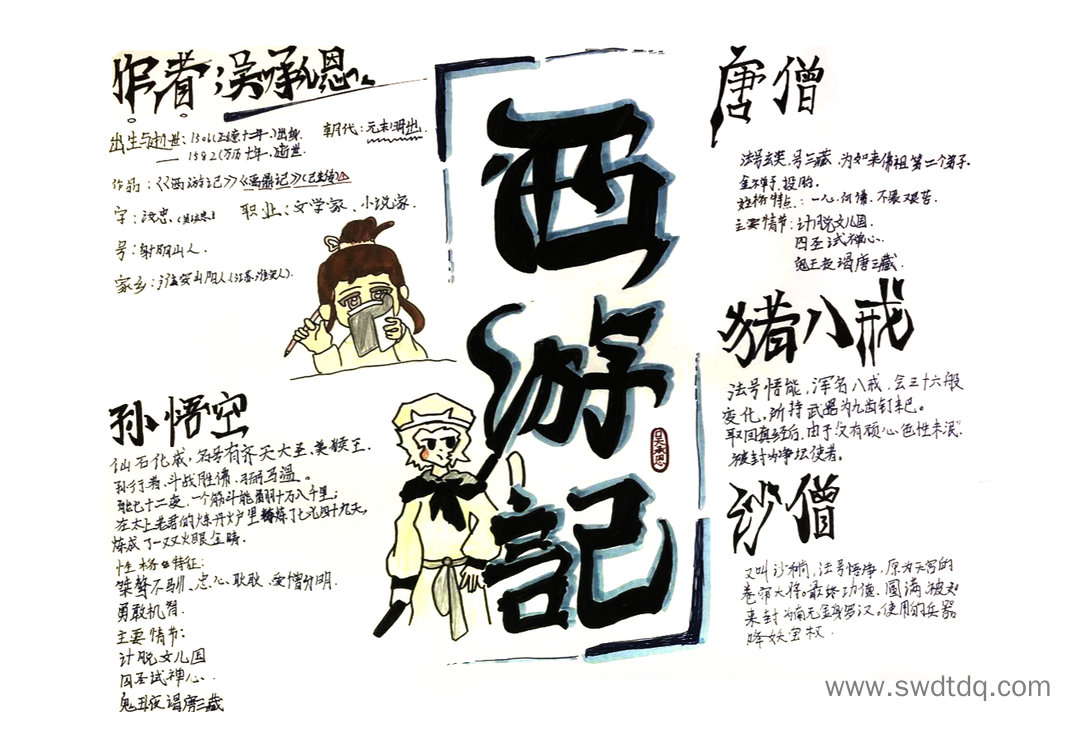 作者：吴承恩
出生与逝世：1501(正德十二年)出生
1582(万历十年)逝世
朝代：元末明出
作品：《西游记》《禹鼎记》(已失传)
字：汝忠
职业：文学家、小说家
号：射阳山人
家乡：淮安山阳人(江苏淮安人)
孙悟空
仙石化成，名号有齐天大圣、美猴王、
孙行者、斗战胜佛、弼马温。
七十二变，一个筋斗能翻十万八千里；
在太上老君的炼丹炉里炼了七七四十九天，
炼成了一双火眼金睛.
性格特征：
桀骜不驯、忠心耿耿、爱憎分明.
勇敢机智.
主要情节：
计脱女儿国
四圣试禅心.
鬼王夜谒唐三藏
西游記
吴承恩
唐僧
法号玄奘，号三藏，为如来佛祖第二个弟子.
金禅子投胎.
性格特点：一心向佛，不畏艰苦.
主要情节：计脱女儿国
四圣试禅心.
鬼王夜谒唐三藏.
猪八戒
法号悟能，浑名八戒，会三十六般
变化，所持武器为九齿钉耙。
取回真经后，由于又有顽心色性未泯，
被封为净坛使者。
沙僧
又叫沙和尚，法号悟净，原为天宫的
卷帘大将。最终功德圆满，被如
来封为南无金身罗汉。使用的兵器
降妖宝杖.
www.swdtdq.com